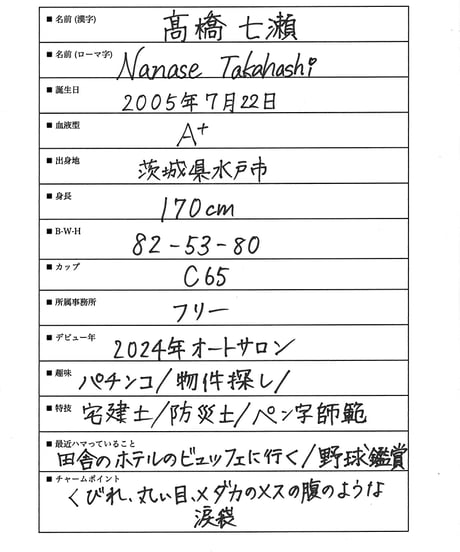 ■ 名前 (漢字)
髙橋 七瀬
■ 名前 (ローマ字)
Nanase Takahashi
■ 誕生日
2005年7月22日
■ 血液型
A+
■ 出身地
茨城県水戸市
■ 身長
170cm
■ B-W-H
82-53-80
■ カップ
C65
■ 所属事務所
フリー
■ デビュー年
2024年オートサロン
■ 趣味
パチンコ/物件探し/
■ 特技
宅建士/防災士/ペン字師範
■ 最近ハマっていること
田舎のホテルのビュッフェに行く/野球鑑賞
■ チャームポイント
くびれ、丸い目、メダカのメスの腹のような
涙袋